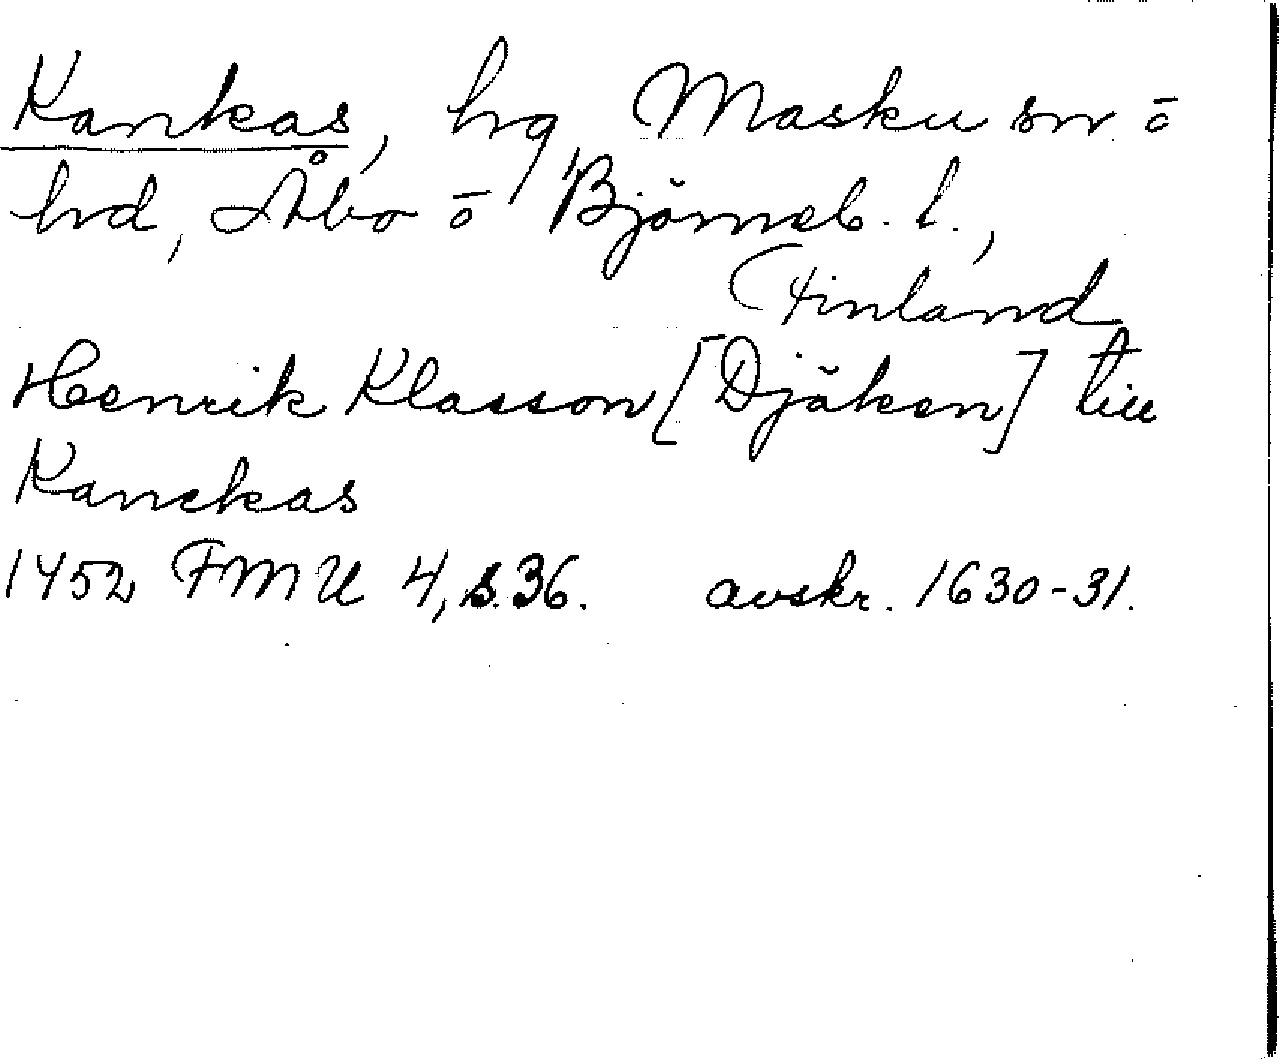 Kankas, hrg Masku sn o
hrd, Åbo o Björneb. l.,
Finland
Henrik Klasson [Djäken] till
Kanckas
1452 FMU 4, s. 36. avskr. 1630-31.